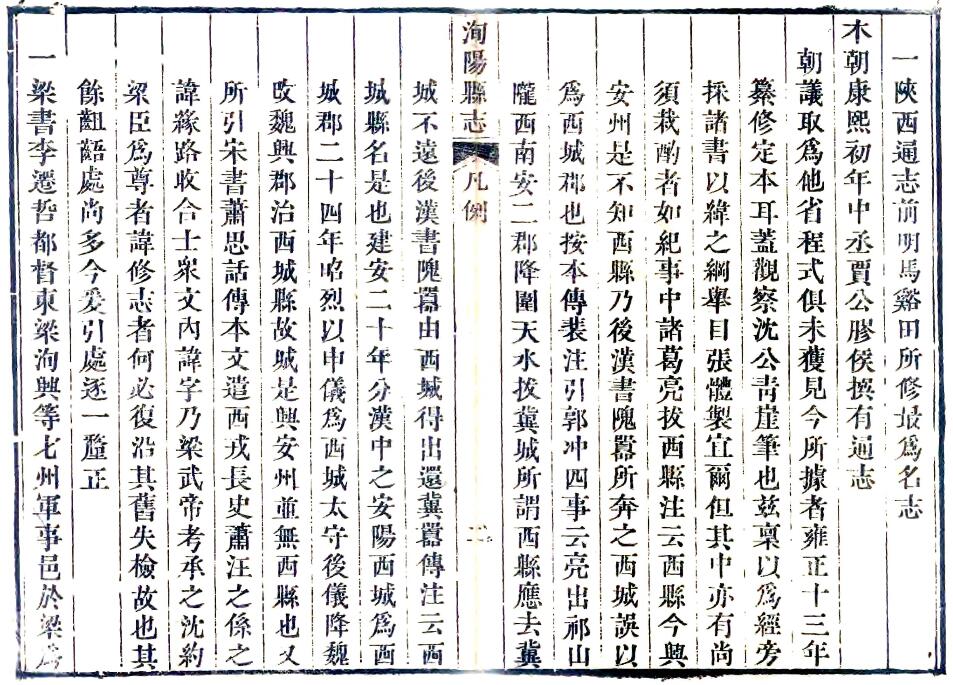 一陝西通志前明馬谿田所修最爲名志
本朝康熙初年中丞賈公膠侯撰有通志
朝議取爲他省程式俱未獲見今所據者雍正十三年
纂修定本耳蓋觀察沈公靑崖筆也茲稟以爲經旁
採諸書以緯之綱舉目張體製宜爾但其中亦有尚
須裁酌者如紀事中諸葛亮拔西縣注云西縣今興
安州是不知西縣乃後漢書隗囂所奔之西城誤以
爲西城郡也按本傳裴注引郭冲四事云亮出祁山
隴西南安二郡降圍天水拔冀城所謂西縣應去冀
洵陽縣志
凡例
二
城不遠後漢書隗囂由西城得出還冀囂傳注云西
城縣名是也建安二十年分漢中之安陽西城爲西
城郡二十四年昭烈以申儀爲西城太守後儀降魏
攺魏興郡治西城縣故城是興安州並無西縣也又
所引宋書蕭思話傳本文遣西戎長史蕭汪之係之
諱緣路收合士衆文內諱字乃梁武帝考承之沈約
梁臣爲尊者諱修志者何必復沿其舊失檢故也其
餘齟齬處尚多今爰引處逐一釐正
一梁書李遷哲都督東梁洵興等七州軍事邑於梁爲